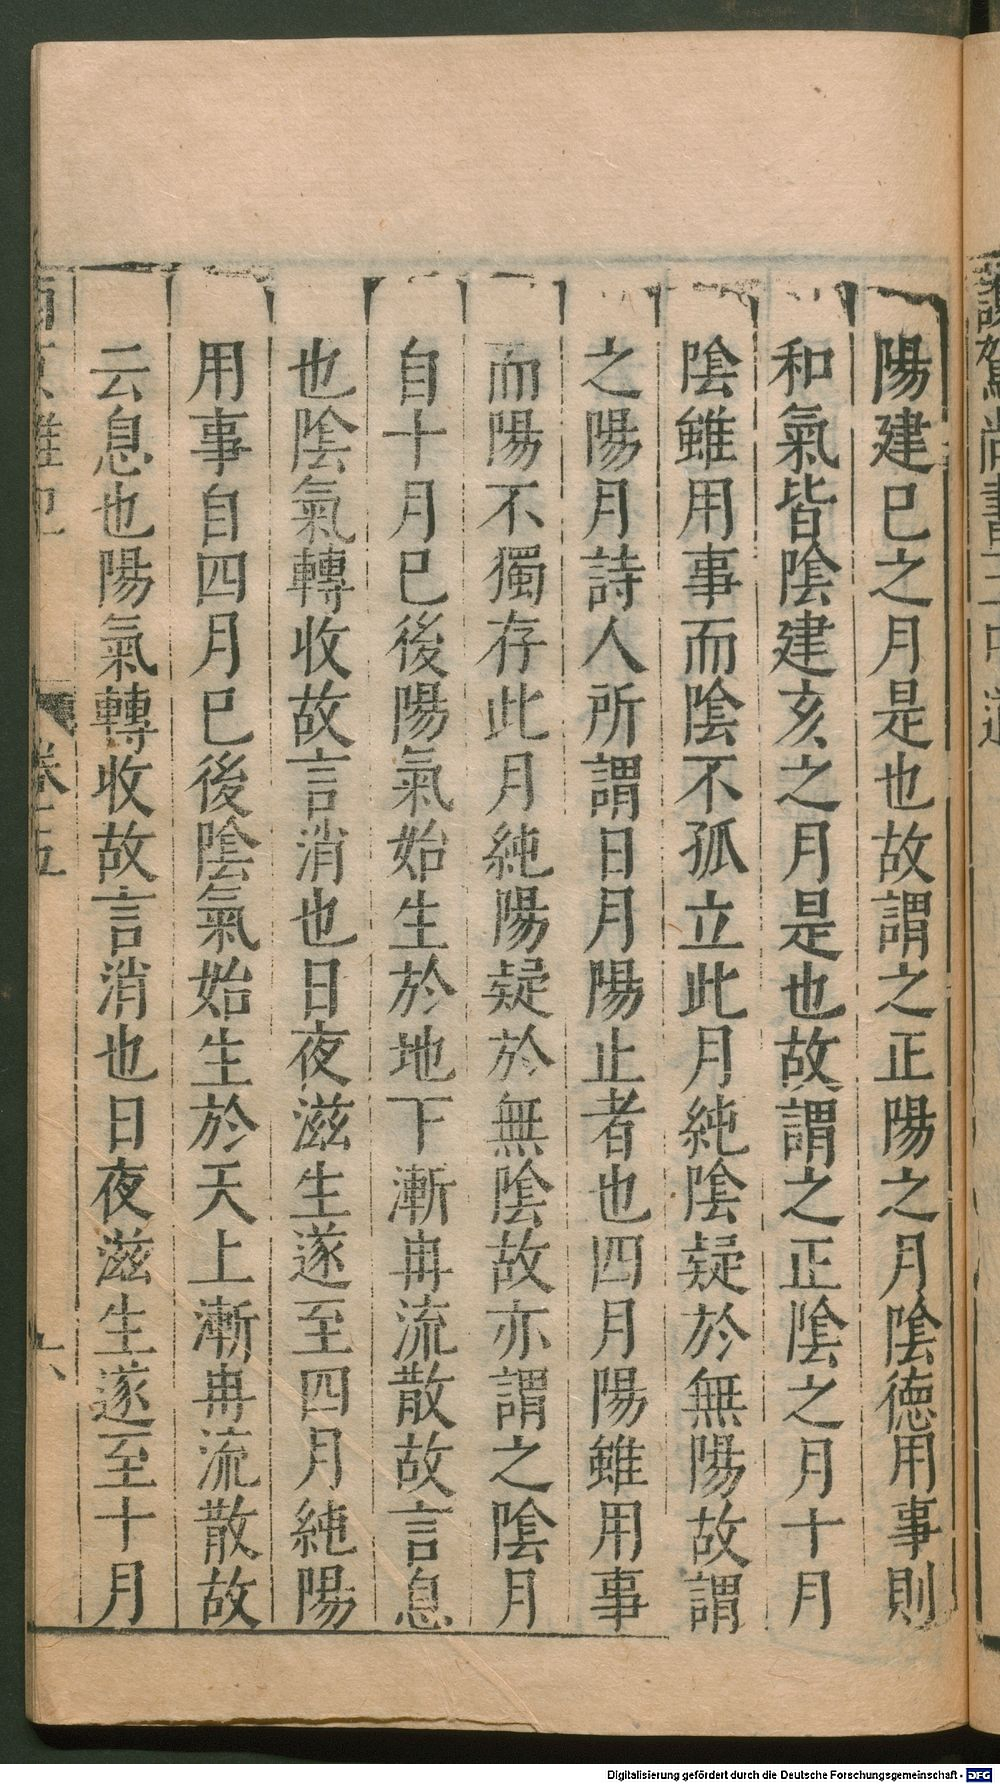 陽建巳之月是也故謂之正陽之月陰德用事則
和氣皆陰建亥之月是也故謂之正陰之月十月
陰雖用事而陰不孤立此月純陰疑於無陽故謂
之陽月詩人所謂日月陽止者也四月陽雖用事
而陽不獨存此月純陽疑於無陰故亦謂之陰月
自十月已後陽氣始生於地下漸冉流散故言息
也陰氣轉收故言消也日夜滋生遂至四月純陽
用事自四月已後陰氣始生於天上漸冉流散故
云息也陽氣轉收故言消也日夜滋生遂至十月
西京雜記 卷五 六
Digitalisierung gefördert durch die Deutsche Forschungsgemeinschaft - DFG